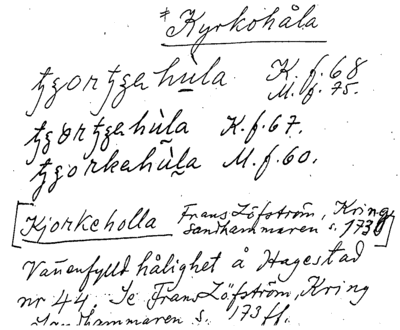 * Kyrkohåla
tgortgahùla K. f. 68
M. f. 75.
tgortgahùla K. f. 67.
tgorkahùla M. f. 60.
[Kjorkeholla Frans Löfström, Kring
Sandhammaren s. 173]
Vattenfylld hålighet å Hagestad
nr 44. Se Frans Löfström, Kring
Sandhammaren s. 173 ff.